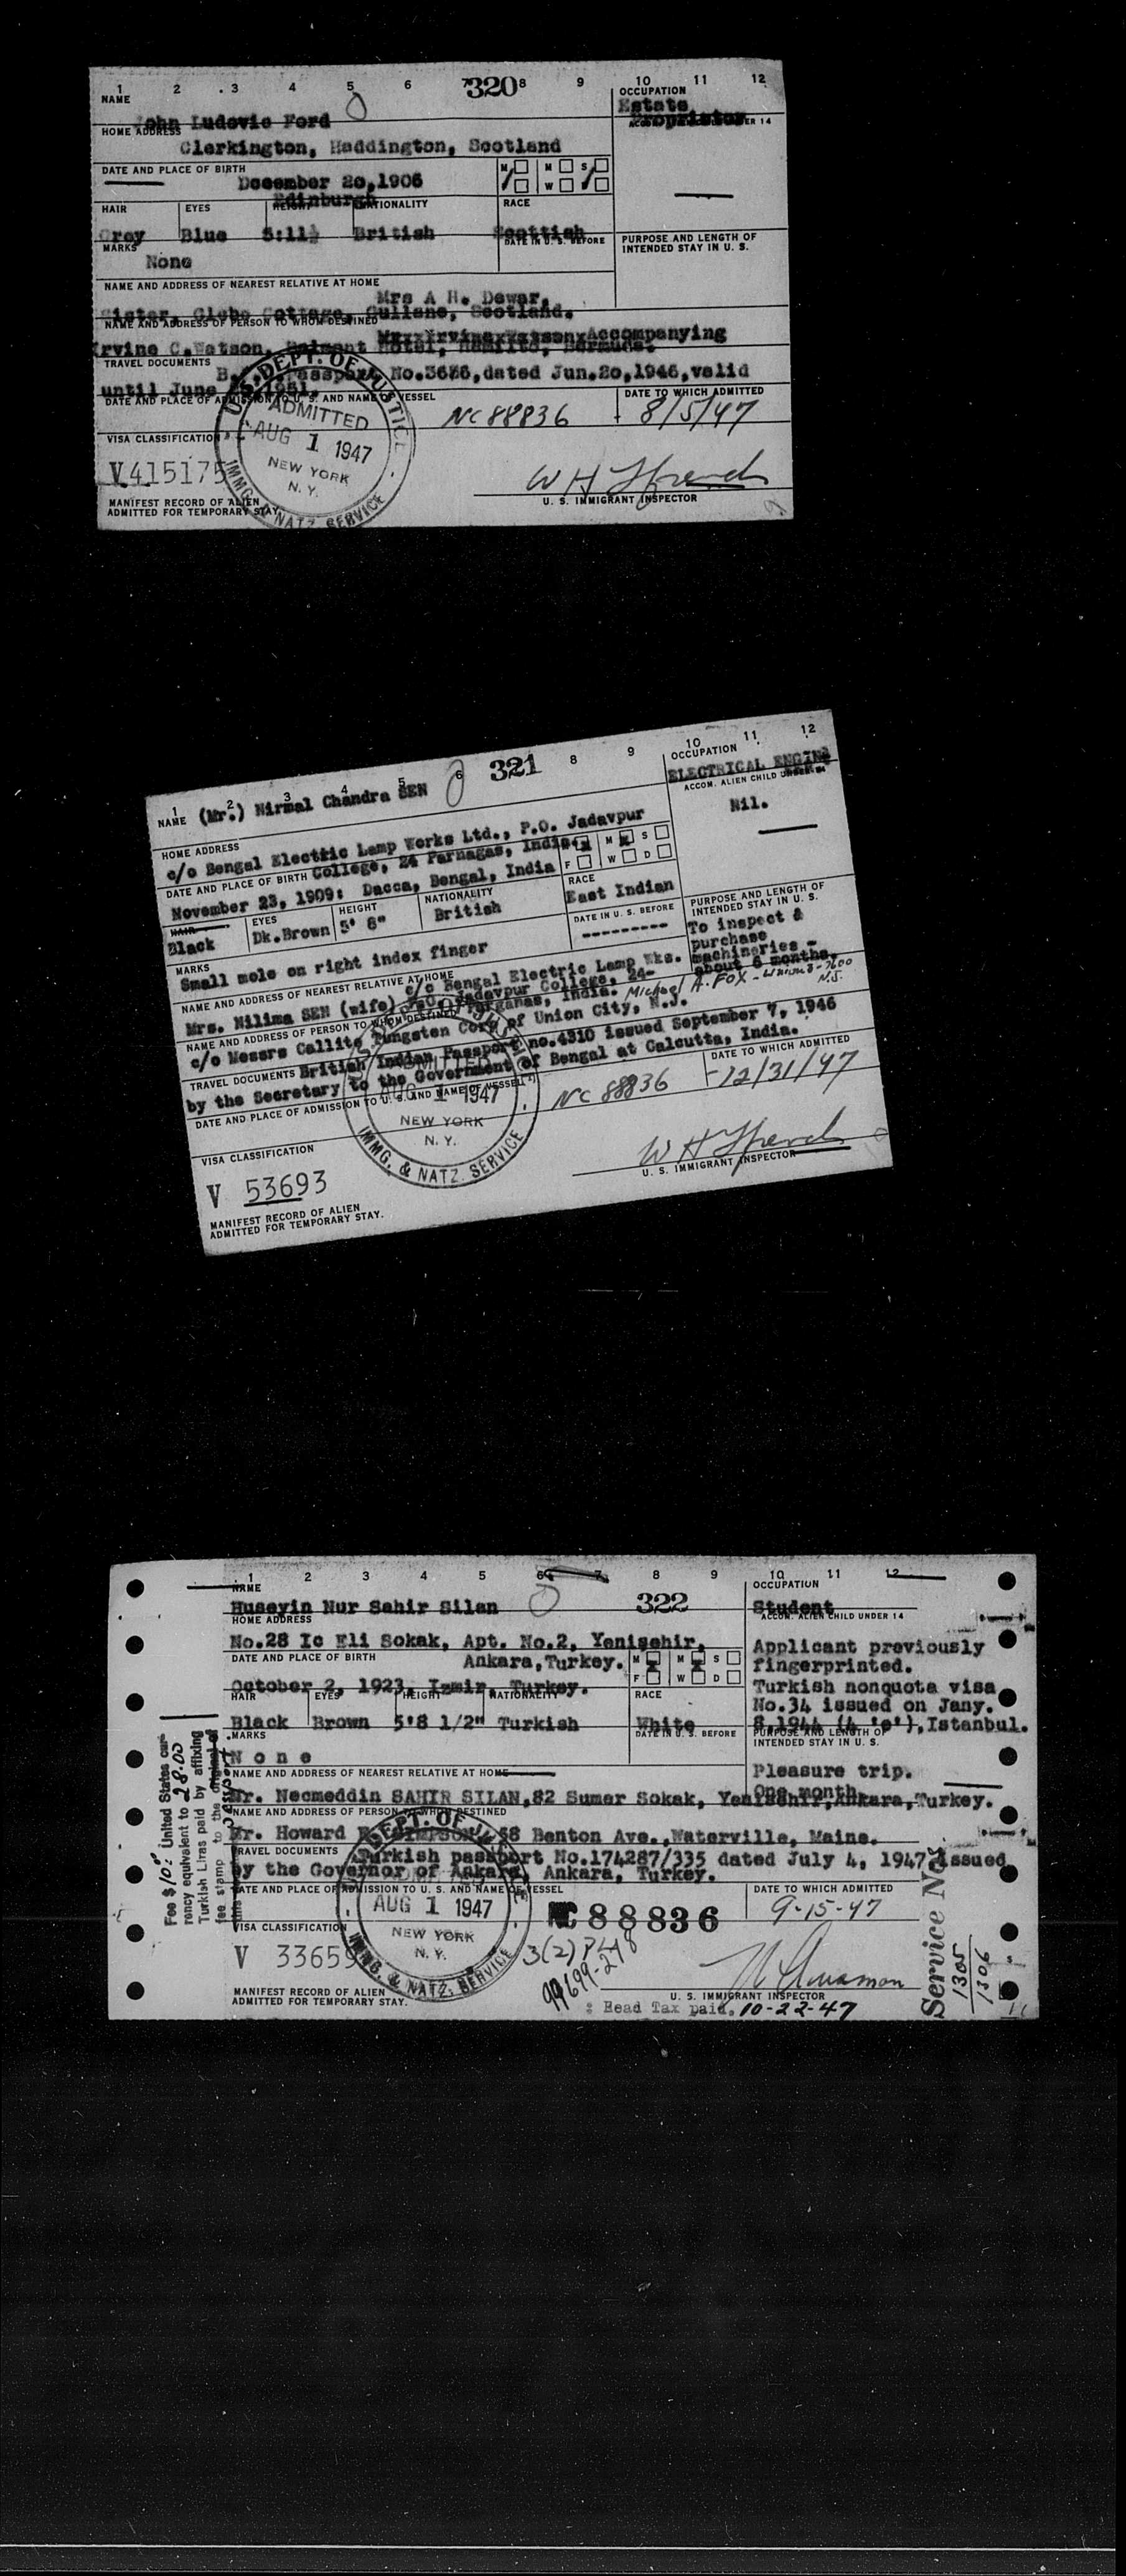 1 2 3 4 5 6 7 320 8 9 10 11 12
NAME OCCUPATION
John Ludovic Ford Estate Proprietor
HOME ADDRESS
Clerkington, Haddington, Scotland
DATE AND PLACE OF BIRTH M M S
December 20, 1906 W
Edinburgh
HAIR EYES HEIGHT NATIONALITY RACE
Grey Blue 5:11½ British Scottish
MARKS DATE IN U. S. BEFORE PURPOSE AND LENGTH OF INTENDED STAY IN U. S.
None
NAME AND ADDRESS OF NEAREST RELATIVE AT HOME
Mrs A H. Dewar,
Sister, Glebe Cottage, Gullane, Scotland.
NAME AND ADDRESS OF PERSON TO WHOM DESTINED
Accompanying
Irvine C. Watson, Hotel, Bermuda.
TRAVEL DOCUMENTS
Passport No. dated Jun.20,1946, valid
until June 1951.
DATE AND PLACE OF ADMISSION TO U. S. AND NAME OF VESSEL DATE TO WHICH ADMITTED
NC 88836 8/5/47
U. S. DEPT. OF JUSTICE
ADMITTED
AUG 1 1947
NEW YORK
N. Y.
IMMG. & NATZ. SERVICE
VISA CLASSIFICATION
V 415175
U. S. IMMIGRANT INSPECTOR
MANIFEST RECORD OF ALIEN
ADMITTED FOR TEMPORARY STAY.
1 2 3 4 5 6 321 8 9 10 11 12
NAME (Mr.) Nirmal Chandra SEN OCCUPATION
ELECTRICAL ENGINE
ACCOM. ALIEN CHILD UNDER 14
Nil.
HOME ADDRESS
c/o Bengal Electric Lamp Works Ltd., P.O. Jadavpur
DATE AND PLACE OF BIRTH College, 24 Parnagas, India. M S
November 23, 1909: Dacca, Bengal, India F W D
HAIR EYES HEIGHT NATIONALITY RACE
Black Dk.Brown 5' 8" British East Indian
MARKS DATE IN U. S. BEFORE
Small mole on right index finger ---------
PURPOSE AND LENGTH OF INTENDED STAY IN U. S.
To inspect & purchase machineries - about 6 months.
NAME AND ADDRESS OF NEAREST RELATIVE AT HOME
c/o Bengal Electric Lamp Wks.
Mrs. Nilima SEN (wife) P.O. Jadavpur College, 24-
Parganas, India. Michael A. Fox
NAME AND ADDRESS OF PERSON TO WHOM DESTINED
c/o Messrs Callite Tungsten Corp of Union City, N.J.
TRAVEL DOCUMENTS British Indian Passport no.4310 issued September 7, 1946
by the Secretary to the Government of Bengal at Calcutta, India.
DATE AND PLACE OF ADMISSION TO U. S. AND NAME OF VESSEL DATE TO WHICH ADMITTED
NC 88836 12/31/47
ADMITTED
AUG 1 1947
NEW YORK
N. Y.
IMMG. & NATZ. SERVICE
VISA CLASSIFICATION
V 53693
U. S. IMMIGRANT INSPECTOR
MANIFEST RECORD OF ALIEN
ADMITTED FOR TEMPORARY STAY.
1 2 3 4 5 6 7 8 9 10 11 12
NAME 322 OCCUPATION
Huseyin Nur Sahir Silan Student
HOME ADDRESS ACCOM. ALIEN CHILD UNDER 14
No.28 Ic Eli Sokak, Apt. No.2, Yenisehir,
DATE AND PLACE OF BIRTH Ankara, Turkey. M M S
October 2, 1923, Izmir, Turkey. F W D
Applicant previously
fingerprinted.
Turkish nonquota visa
No.34 issued on Jany.
8,1944 (4 'e'), Istanbul.
HAIR EYES HEIGHT NATIONALITY RACE
Black Brown 5'8 1/2" Turkish White
MARKS DATE IN U. S. BEFORE PURPOSE AND LENGTH OF INTENDED STAY IN U. S.
None
Pleasure trip.
One month
NAME AND ADDRESS OF NEAREST RELATIVE AT HOME
Mr. Necmeddin SAHIR SILAN, 82 Sumer Sokak, Yenisehir, Ankara, Turkey.
NAME AND ADDRESS OF PERSON TO WHOM DESTINED
Mr. Howard 58 Benton Ave., Waterville, Maine.
TRAVEL DOCUMENTS Turkish passport No.174287/335 dated July 4, 1947 issued
by the Governor of Ankara, Ankara, Turkey.
DATE AND PLACE OF ADMISSION TO U. S. AND NAME OF VESSEL DATE TO WHICH ADMITTED
NC 88836 9-15-47
DEPT. OF
AUG 1 1947
NEW YORK
N. Y.
IMMG. & NATZ. SERVICE
VISA CLASSIFICATION
V 33659
99699-
MANIFEST RECORD OF ALIEN
ADMITTED FOR TEMPORARY STAY.
U. S. IMMIGRANT INSPECTOR
: Head Tax paid. 10-22-47
Fee $10: United States cur-
rency equivalent to 28.00
Turkish Liras paid by affixing
fee stamp to the original of
Service Nos
1305
1306